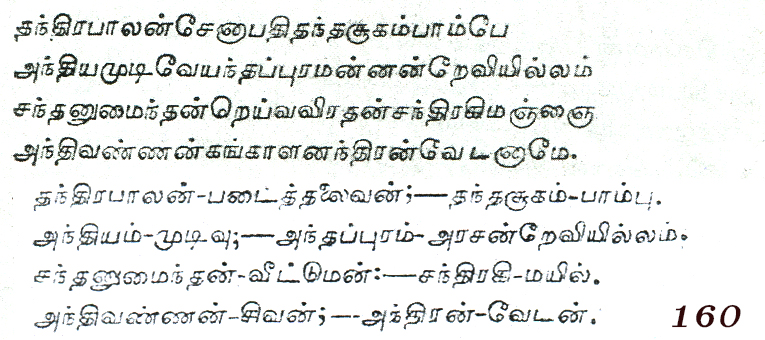 தந்திரபாலன்சேனாபதிதந்தசூகம்பாம்பே
அந்தியமுடிவேயந்தப்புரமன்னன்றேவியில்லம்
சந்தனுமைந்தன்றெய்வவிரதன்சந்திரகிமஞ்ஞை
அந்திவண்ணன்கங்காளனந்திரன்வேடனாமே.
தந்திரபாலன்-படைத்தலைவன்;—தந்தசூகம்-பாம்பு.
அந்தியம்-முடிவு;—அந்தப்புரம்-அரசன்றேவியில்லம்.
சந்தனுமைந்தன்-வீட்டுமன்:—சந்திரகி-மயில்.
அந்திவண்ணன்-சிவன்;—அந்திரன்-வேடன்.
160